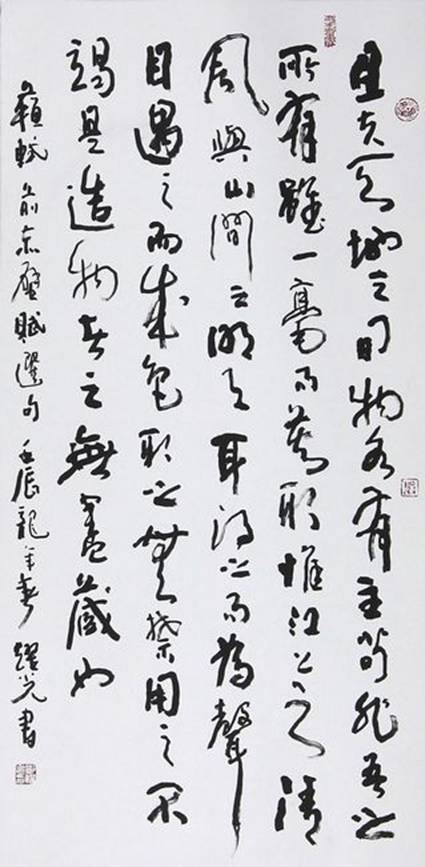 且夫天地之間物各有主苟非吾之
所有雖一毫而莫取惟江上之清
風與山間之明月耳得之而為聲
目遇之而成色取之無禁用之不
竭是造物者之無盡藏也
蘇軾前赤壁賦選句 壬辰龍年春 耀光書